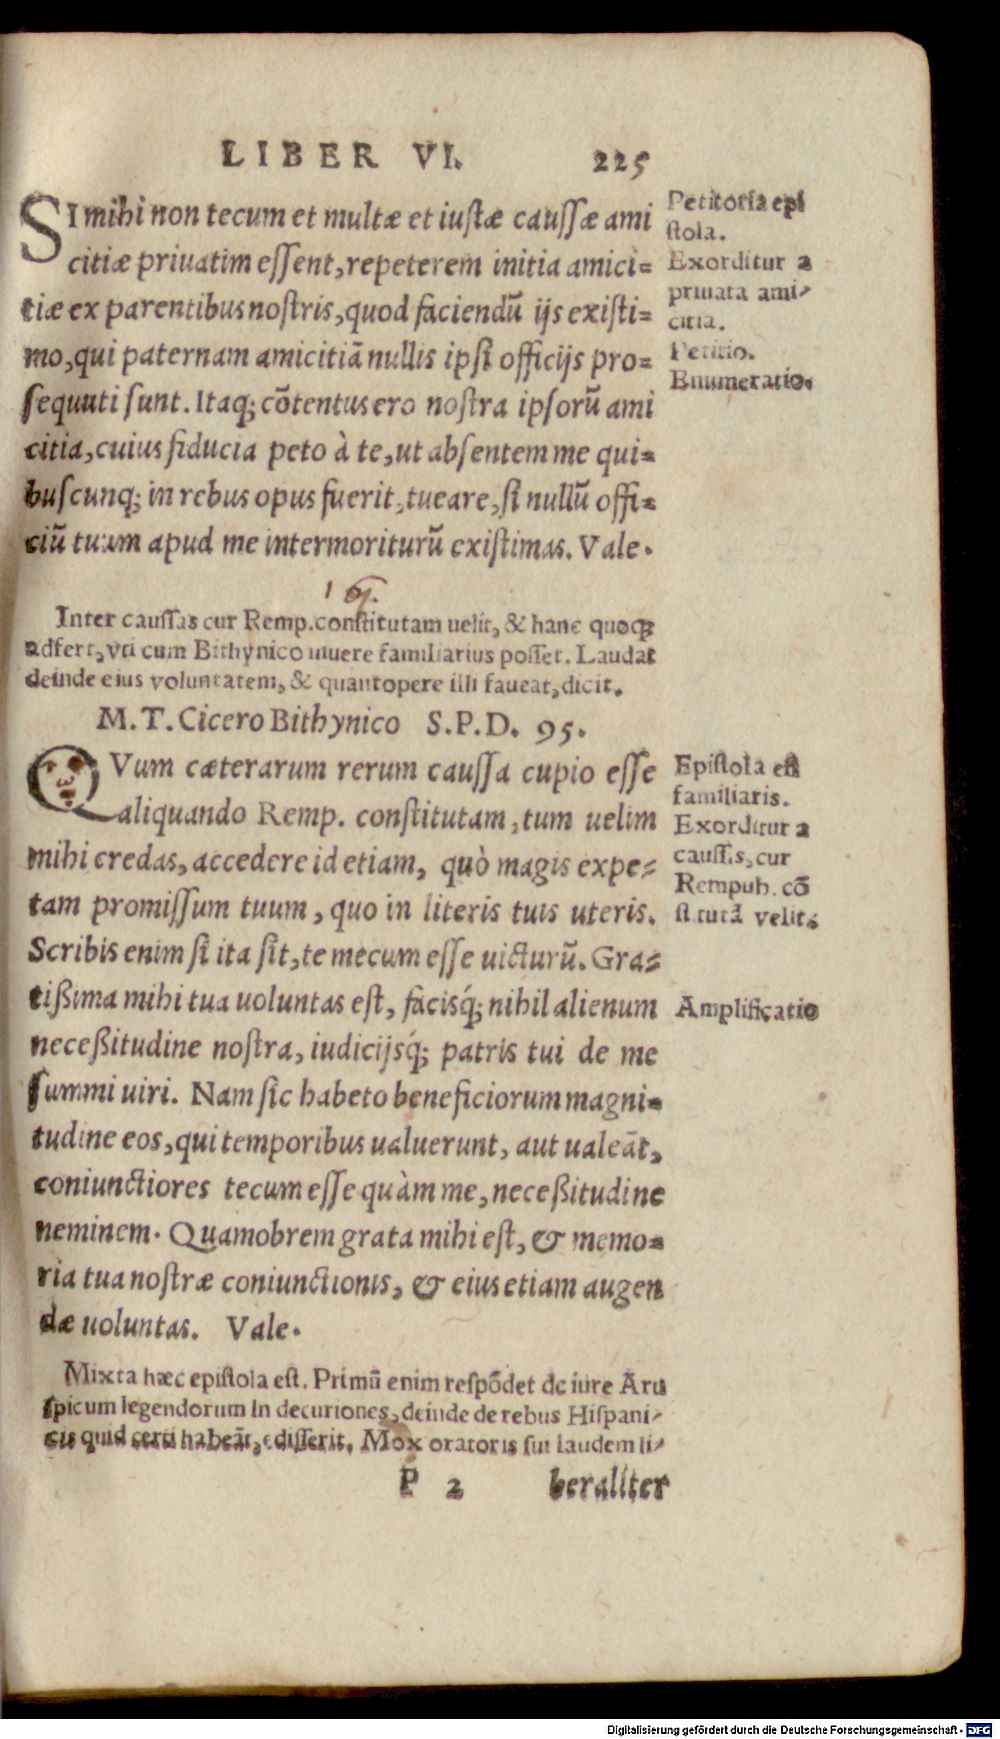 LIBER VI. 225
SI mihi non tecum et multæ et iustæ caussæ ami
citiæ priuatim essent, repeterem initia amici=
tiæ ex parentibus nostris, quod faciendũ ijs existi=
mo, qui paternam amicitiã nullis ipsi officijs pro=
sequuti sunt. Itaq; cõtentus ero nostra ipsorũ ami
citia, cuius fiducia peto à te, ut absentem me qui=
buscunq; in rebus opus fuerit, tueare, si nullũ offi=
ciũ tuum apud me intermoriturũ existimas. Vale.
Petitoria epi
stola.
Exorditur a
priuata ami-
citia.
Petitio.
Enumeratio.
16.
Inter caussas cur Remp. constitutam uelit, & hanc quoq;
adfert, vti cum Bithynico uiuere familiarius posset. Laudat
deinde eius voluntatem, & quantopere illi faueat, dicit.
M. T. Cicero Bithynico S. P. D. 95.
QVum cæterarum rerum caussa cupio esse
aliquando Remp. constitutam, tum uelim
mihi credas, accedere id etiam, quò magis expe=
tam promissum tuum, quo in literis tuis uteris.
Scribis enim si ita sit, te mecum esse uicturũ. Gra=
tißima mihi tua uoluntas est, facisq́; nihil alienum
neceßitudine nostra, iudicijsq́; patris tui de me
summi uiri. Nam sic habeto beneficiorum magni=
tudine eos, qui temporibus ualuerunt, aut ualeãt,
coniunctiores tecum esse quàm me, neceßitudine
neminem. Quamobrem grata mihi est, & memo=
ria tua nostræ coniunctionis, & eius etiam augen
dæ uoluntas. Vale.
Epistola est
familiaris.
Exorditur a
caussis, cur
Rempub. cõ
stitutã velit.
Amplificatio
Mixta hæc epistola est. Primũ enim respõdet de iure Aru
spicum legendorum in decuriones, deinde de rebus Hispani-
cis quid certi habeãt, edisserit. Mox oratoris sui laudem li-
P 2 beraliter
Digitalisierung gefördert durch die Deutsche Forschungsgemeinschaft - DFG